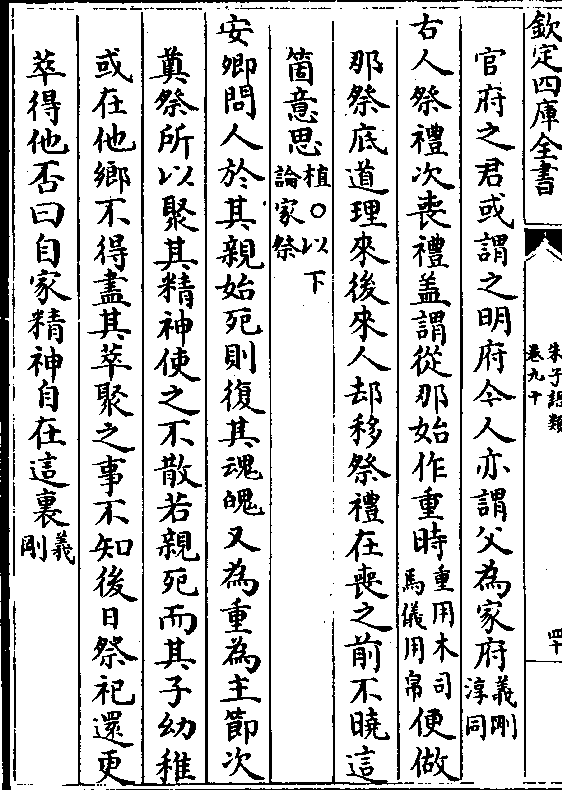 欽定四庫全書
朱子語類
卷九十
四十
官府之君或謂之明府今人亦謂父為家府義剛淳同
古人祭禮次喪禮盖謂從那始作重時重用木司馬儀用帛便做
那祭底道理來後來人却移祭禮在喪之前不曉這
箇意思植○以下論家祭
安卿問人於其親始死則復其魂魄又為重為主節次
奠祭所以聚其精神使之不散若親死而其子幼稚
或在他鄉不得盡其萃聚之事不知後日祭祀還更
萃得他否曰自家精神自在這裏義剛